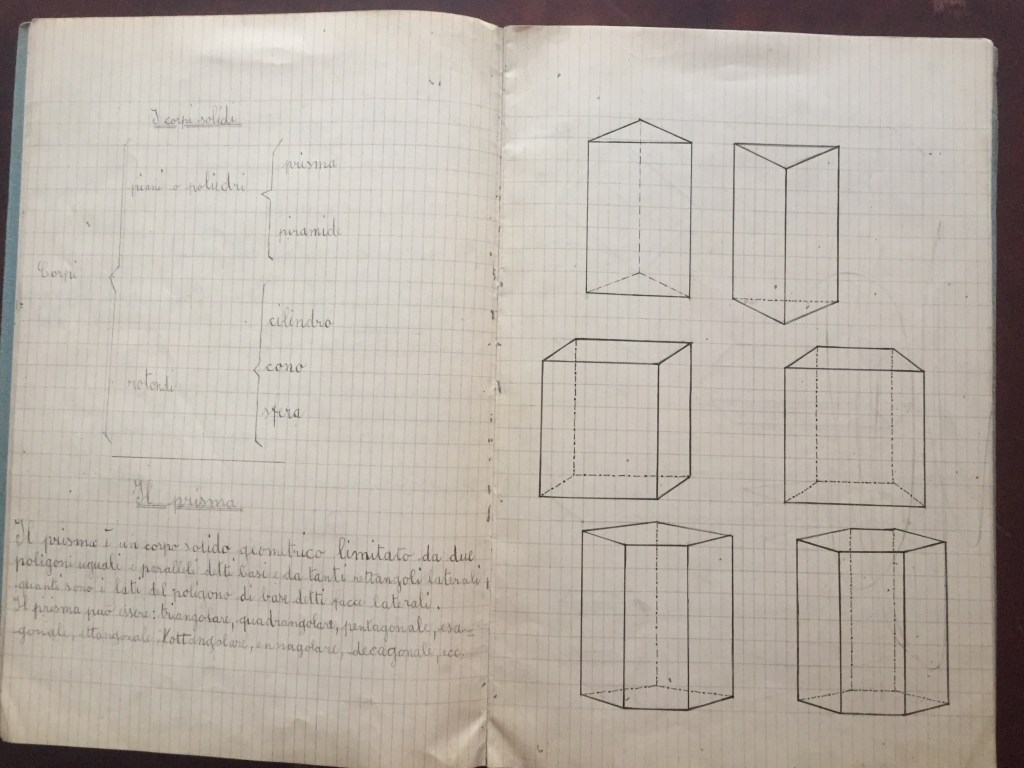 I corpi solidi
Corpi
piani o poliedri
prisma
piramide
rotondi
cilindro
cono
sfera
Il prisma
Il prisma è un corpo solido geometrico limitato da due
poligoni uguali e paralleli detti basi e da tanti rettangoli laterali
quanti sono i lati del poligono di base detti facce laterali.
Il prisma può essere: triangolare, quadrangolare, pentagonale, esa-
gonale, ettagonale, ottangolare, ennagolare, decagonale, ecc.